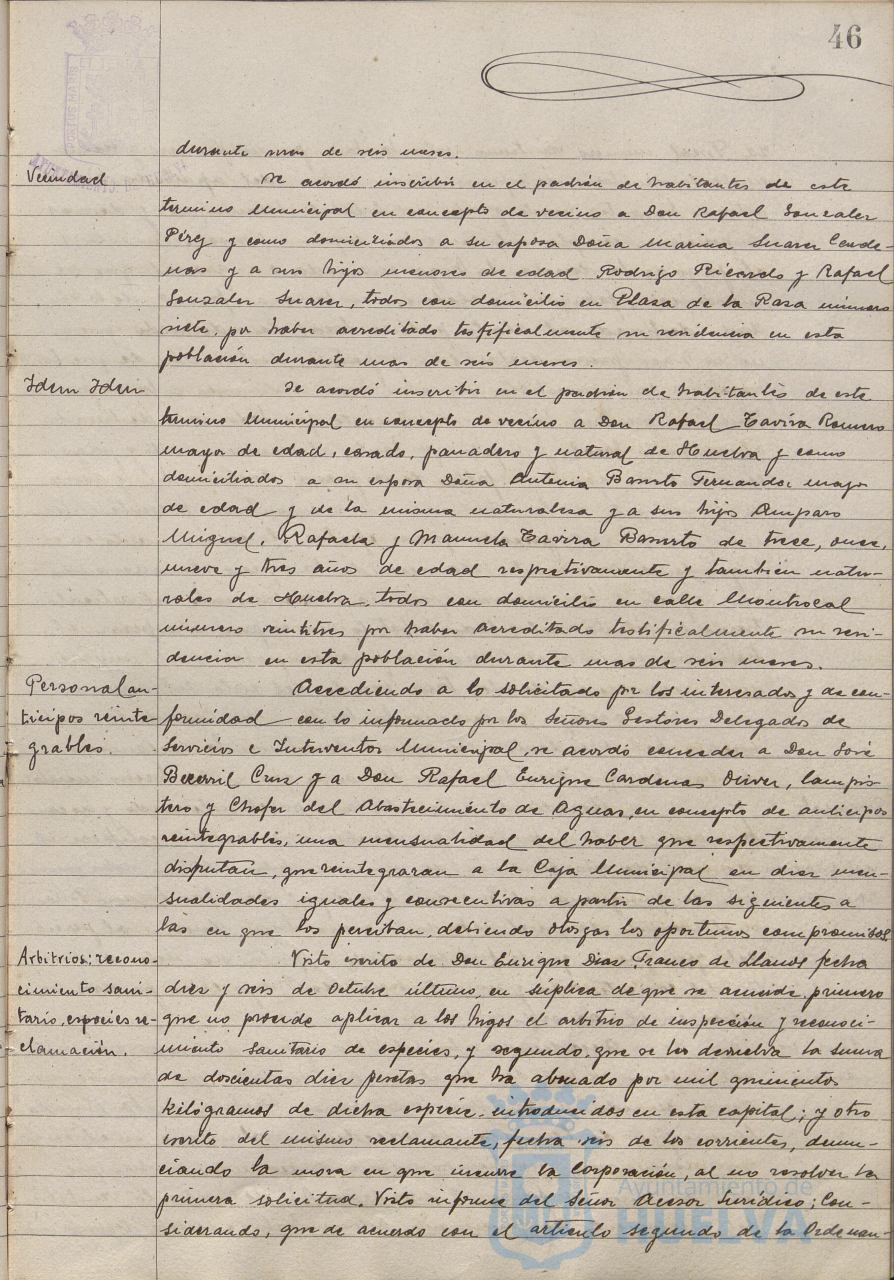 46
durante mas de seis meses.
Vecindad
Se acordó inscribir en el padrón de habitantes de este
termino Municipal en concepto de vecino a Don Rafael Gonzalez
Pérez y como domiciliados a su esposa Doña Marina Suarez Carde-
nas y a sus hijos menores de edad Rodrigo Ricardo y Rafael
Gonzalez Suarez, todos con domicilio en Plaza de la Raza número
siete, por haber acreditado testificalmente su residencia en esta
población durante mas de seis meses.
Idem Idem
Se acordó inscribir en el padrón de habitantes de este
termino Municipal en concepto de vecino a Don Rafael Tavira Romero
mayor de edad, casado, panadero y natural de Huelva y como
domiciliados a su esposa Doña Antonia Basurto Fernandez mayor
de edad y de la misma naturaleza y a sus hijos Amparo
Miguel, Rafaela y Manuela Tavira Basurto de trece, once,
nueve y tres años de edad respectivamente y también natu-
rales de Huelva, todos con domicilio en calle Montrocal
número veintitres por haber acreditado testificalmente su resi-
dencia en esta población durante mas de seis meses.
Personal an-
ticipos reinte
grables.
Accediendo a lo solicitado por los interesados y de con-
formidad con lo informado por los Señores Gestores Delegados de
Servicios e Interventor Municipal, se acordó conceder a Don José
Becerril Cruz y a Don Rafael Enrique Cardenas Oliver, lampis-
tero y Chofer del Abastecimiento de Aguas, en concepto de anticipos
reintegrables, una mensualidad del haber que respectivamente
disfrutan, que reintegraran a la Caja Municipal en diez men-
sualidades iguales y consecutivas a partir de las siguientes a
las en que los perciban, debiendo otorgar los oportunos compromisos.
Arbitrios: recono-
cimiento sani-
tario, especies re-
clamación.
Visto escrito de Don Enrique Diaz Franco de Llanos fecha
diez y seis de Octubre último, en súplica de que se acuerde, primero
que no procede aplicar a los higos el arbitrio de inspección y reconoci-
miento sanitario de especies, y segundo, que se les devuelva la suma
de doscientas diez pesetas que ha abonado por mil quinientos
kilógramos de dicha especie, introducidos en esta capital; y otro
escrito del mismo reclamante, fecha seis de los corrientes, denun-
ciando la mora en que incurre la Corporación, al no resolver la
primera solicitud. Visto informe del Señor Asesor Jurídico; Con-
siderando, que de acuerdo con el articulo segundo de la Ordenan-
Ayuntamiento de
HUELVA